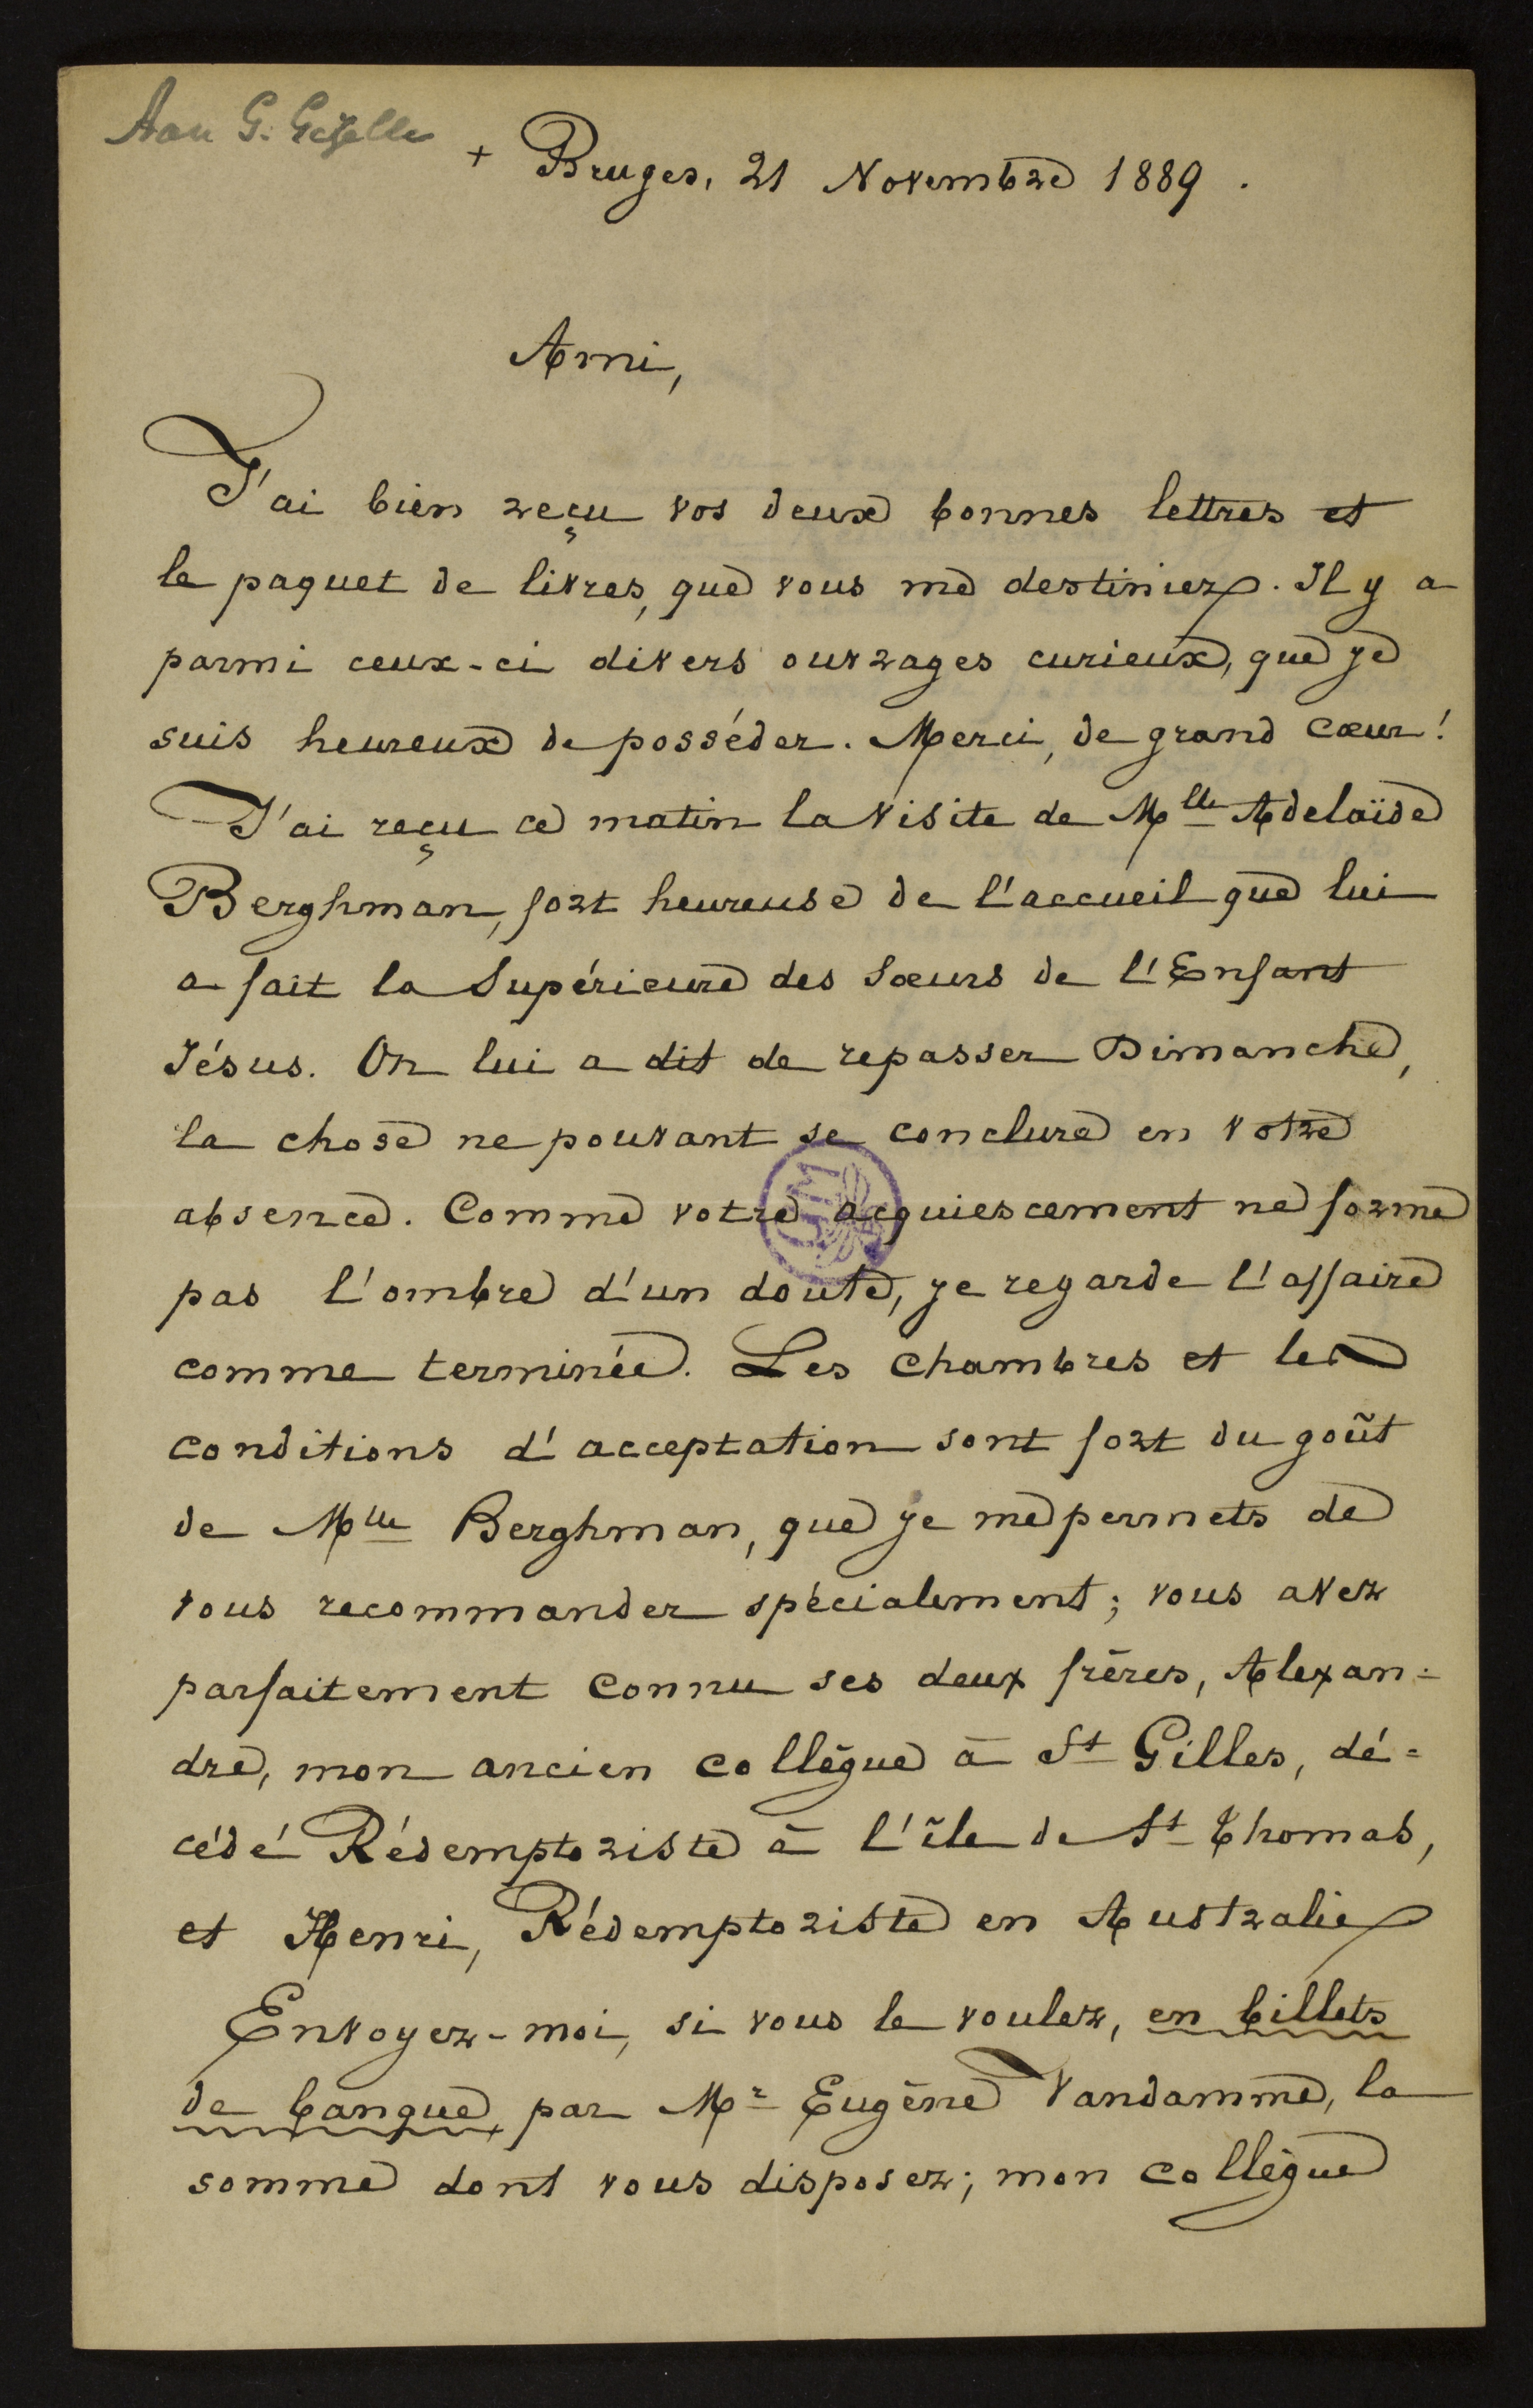 Aan G. Gezelle
+ Bruges, 21 Novembre 1889.
Ami,
J'ai bien reçu vos deux bonnes lettres et
le paquet de livres, que vous me destiniez. Il y a
parmi ceux-ci divers ouvrages curieux, que je
suis heureux de posséder. Merci, de grand cœur!
J'ai reçu ce matin la visite de Mlle Adelaïde
Berghman, fort heureuse de l'accueil que lui
a fait la Supérieure des Sœurs de l'Enfant
Jésus. On lui a dit de repasser Dimanche,
la chose ne pouvant se conclure en votre
absence. Comme votre acquiescement ne forme
pas l'ombre d'un doute, je regarde l'affaire
comme terminée. Les chambres et les
conditions d'acceptation sont fort du goût
de Mlle Berghman, que je me permets de
vous recommander spécialement; vous avez
parfaitement connu ses deux frères, Alexan=
dre, mon ancien collègue à St Gilles, dé=
cédé Rédemptoriste à l'île de St Thomas,
et Henri, Rédemptoriste en Australie
Envoyez-moi, si vous le voulez, en billets
de banque, par Mr Eugène Vandamme, la
somme dont vous disposez; mon collègue